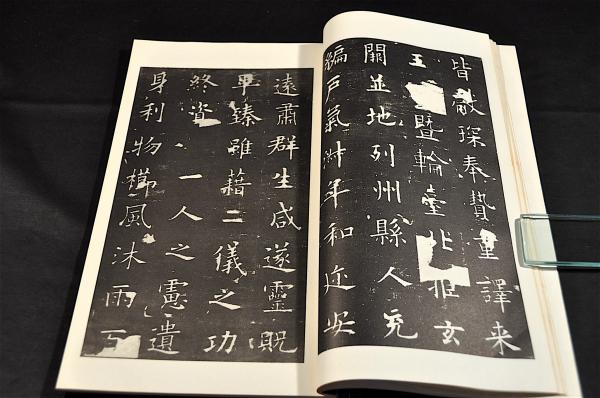 皆獻琛奉贄重譯来
王暨輪臺北拒玄
闕並地列州縣人充
編戶氣淑年和迩安
遠肅群生咸遂靈貺
畢臻雖藉二儀之功
終資一人之慮遺
身利物櫛風沐雨